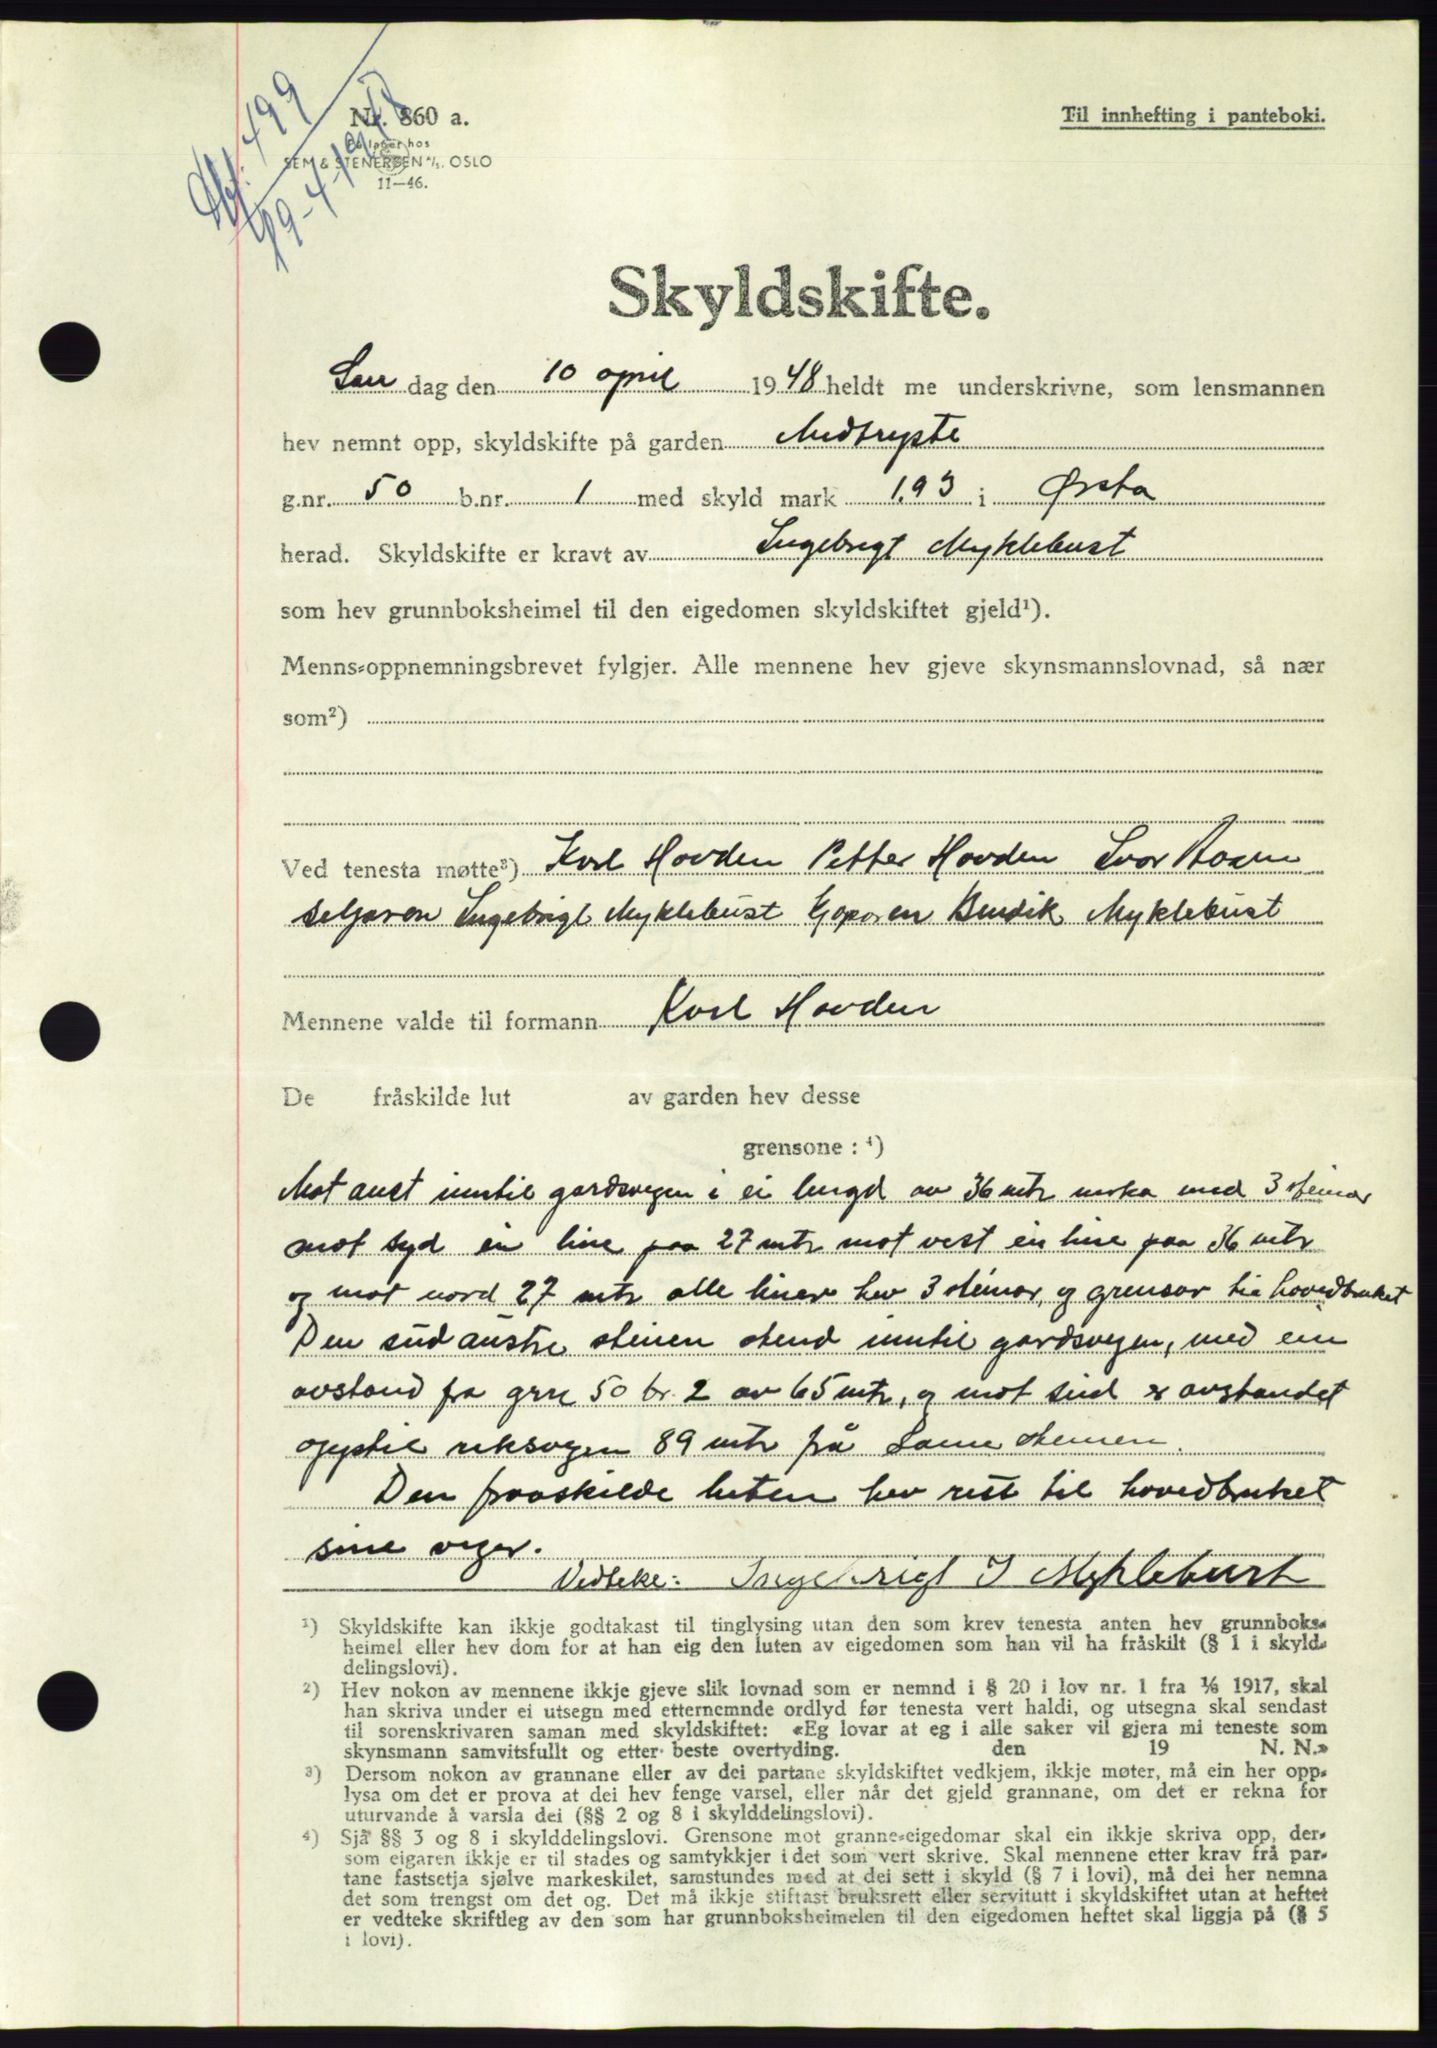 Dbf. 499
19-4-1948
Nr. 860 a.
På lager hos
SEM & STENERSEN A/S. OSLO
11—46.
Til innhefting i panteboki.
Skyldskifte.
Lau dag den 10 april 1948 heldt me underskrivne, som lensmannen
hev nemnt opp, skyldskifte på garden
g.nr. 50 b.nr. 1 med skyld mark 1.93 i Ørsta
herad. Skyldskifte er kravt av Ingebrigt Myklebust
som hev grunnboksheimel til den eigedomen skyldskiftet gjeld¹).
Menns-oppnemningsbrevet fylgjer. Alle mennene hev gjeve skynsmannslovnad, så nær
som²)
Ved tenesta møtte³) Karl Hovden Petter Hovden Ivar Aasen
seljaren Ingebrigt Myklebust Kjøparen Bendik Myklebust
Mennene valde til formann Karl Hovden
De fråskilde lut av garden hev desse
grensone : ⁴)
Mot aust inntil gardsvegen i ei lengd av 36 mtr merka med 3 steinar
mot syd ein line paa 27 mtr mot vest ein line paa 36 mtr
og mot nord 27 mtr alle linar hev 3 steinar, og grensar til hovedbruket
Den sudaustre steinen stend inntil gardsvegen, med ein
avstand fra grn 50 br. 2 av 65 mtr, og mot sud er avstandet
opptil riksvegen 89 mtr frå same steinen.
Den fraaskilde luten hev rett til hovedbruket
sine veger.
Vedteke: Ingebrigt I Myklebust
¹) Skyldskifte kan ikkje godtakast til tinglysing utan den som krev tenesta anten hev grunnboks-
heimel eller hev dom for at han eig den luten av eigedomen som han vil ha fråskilt (§ 1 i skyld-
delingslovi).
²) Hev nokon av mennene ikkje gjeve slik lovnad som er nemnd i § 20 i lov nr. 1 fra 1/6 1917, skal
han skriva under ei utsegn med etternemnde ordlyd før tenesta vert haldi, og utsegna skal sendast
til sorenskrivaren saman med skyldskiftet: «Eg lovar at eg i alle saker vil gjera mi teneste som
skynsmann samvitsfullt og etter beste overtyding. den 19 N. N.»
³) Dersom nokon av grannane eller av dei partane skyldskiftet vedkjem, ikkje møter, må ein her opp-
lysa om det er prova at dei hev fenge varsel, eller når det gjeld grannane, om det er rekna for
uturvande å varsla dei (§§ 2 og 8 i skylddelingslovi).
⁴) Sjå §§ 3 og 8 i skylddelingslovi. Grensone mot granne-eigedomar skal ein ikkje skriva opp, der-
som eigaren ikkje er til stades og samtykkjer i det som vert skrive. Skal mennene etter krav frå par-
tane fastsetja sjølve markeskilet, samstundes med at dei sett i skyld (§ 7 i lovi), må dei her nemna
det som trengst om det og. Det må ikkje stiftast bruksrett eller servitutt i skyldskiftet utan at heftet
er vedteke skriftleg av den som har grunnboksheimelen til den eigedomen heftet skal liggja på (§ 5
i lovi).